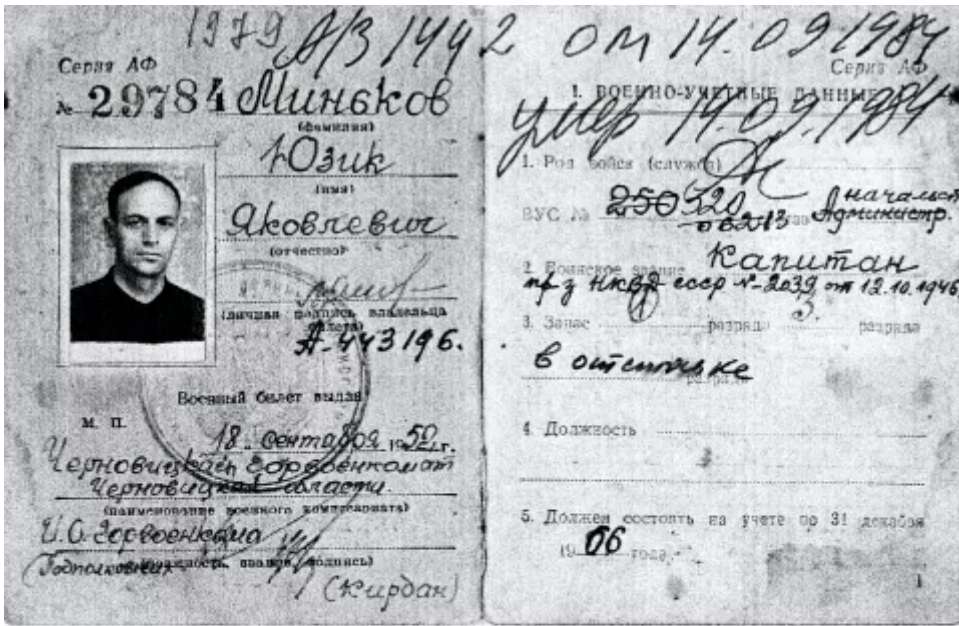 1979 А/З 1442 от 14.09.1984
Серия АФ
№ 29784 Миньков
(фамилия)
Юзик
(имя)
Яковлевич
(отчество)
(личная подпись владельца
билета)
А-443196.
Военный билет выдан
М. П.
18 сентября 1950 г.
Черновицким Горвоенкомат
Черновицкой области
(наименование военного комиссариата)
И.О. Горвоенкома
Подполковник
(должность, звание, подпись)
(Кирдан)
Серия АФ
1. ВОЕННО-УЧЕТНЫЕ ДАННЫЕ
умер 14.09.1984
1. Род войск (служба)
ВУС № 250 520 начальст
Администр.
2. Воинское звание Капитан
пр з НКВД СССР №-2039 от 12.10.1946
3. Запас разряда 3. разряда
в отставке
разряда
4. Должность
5. Должен состоять на учете по 31 декабря
1966 года.
1